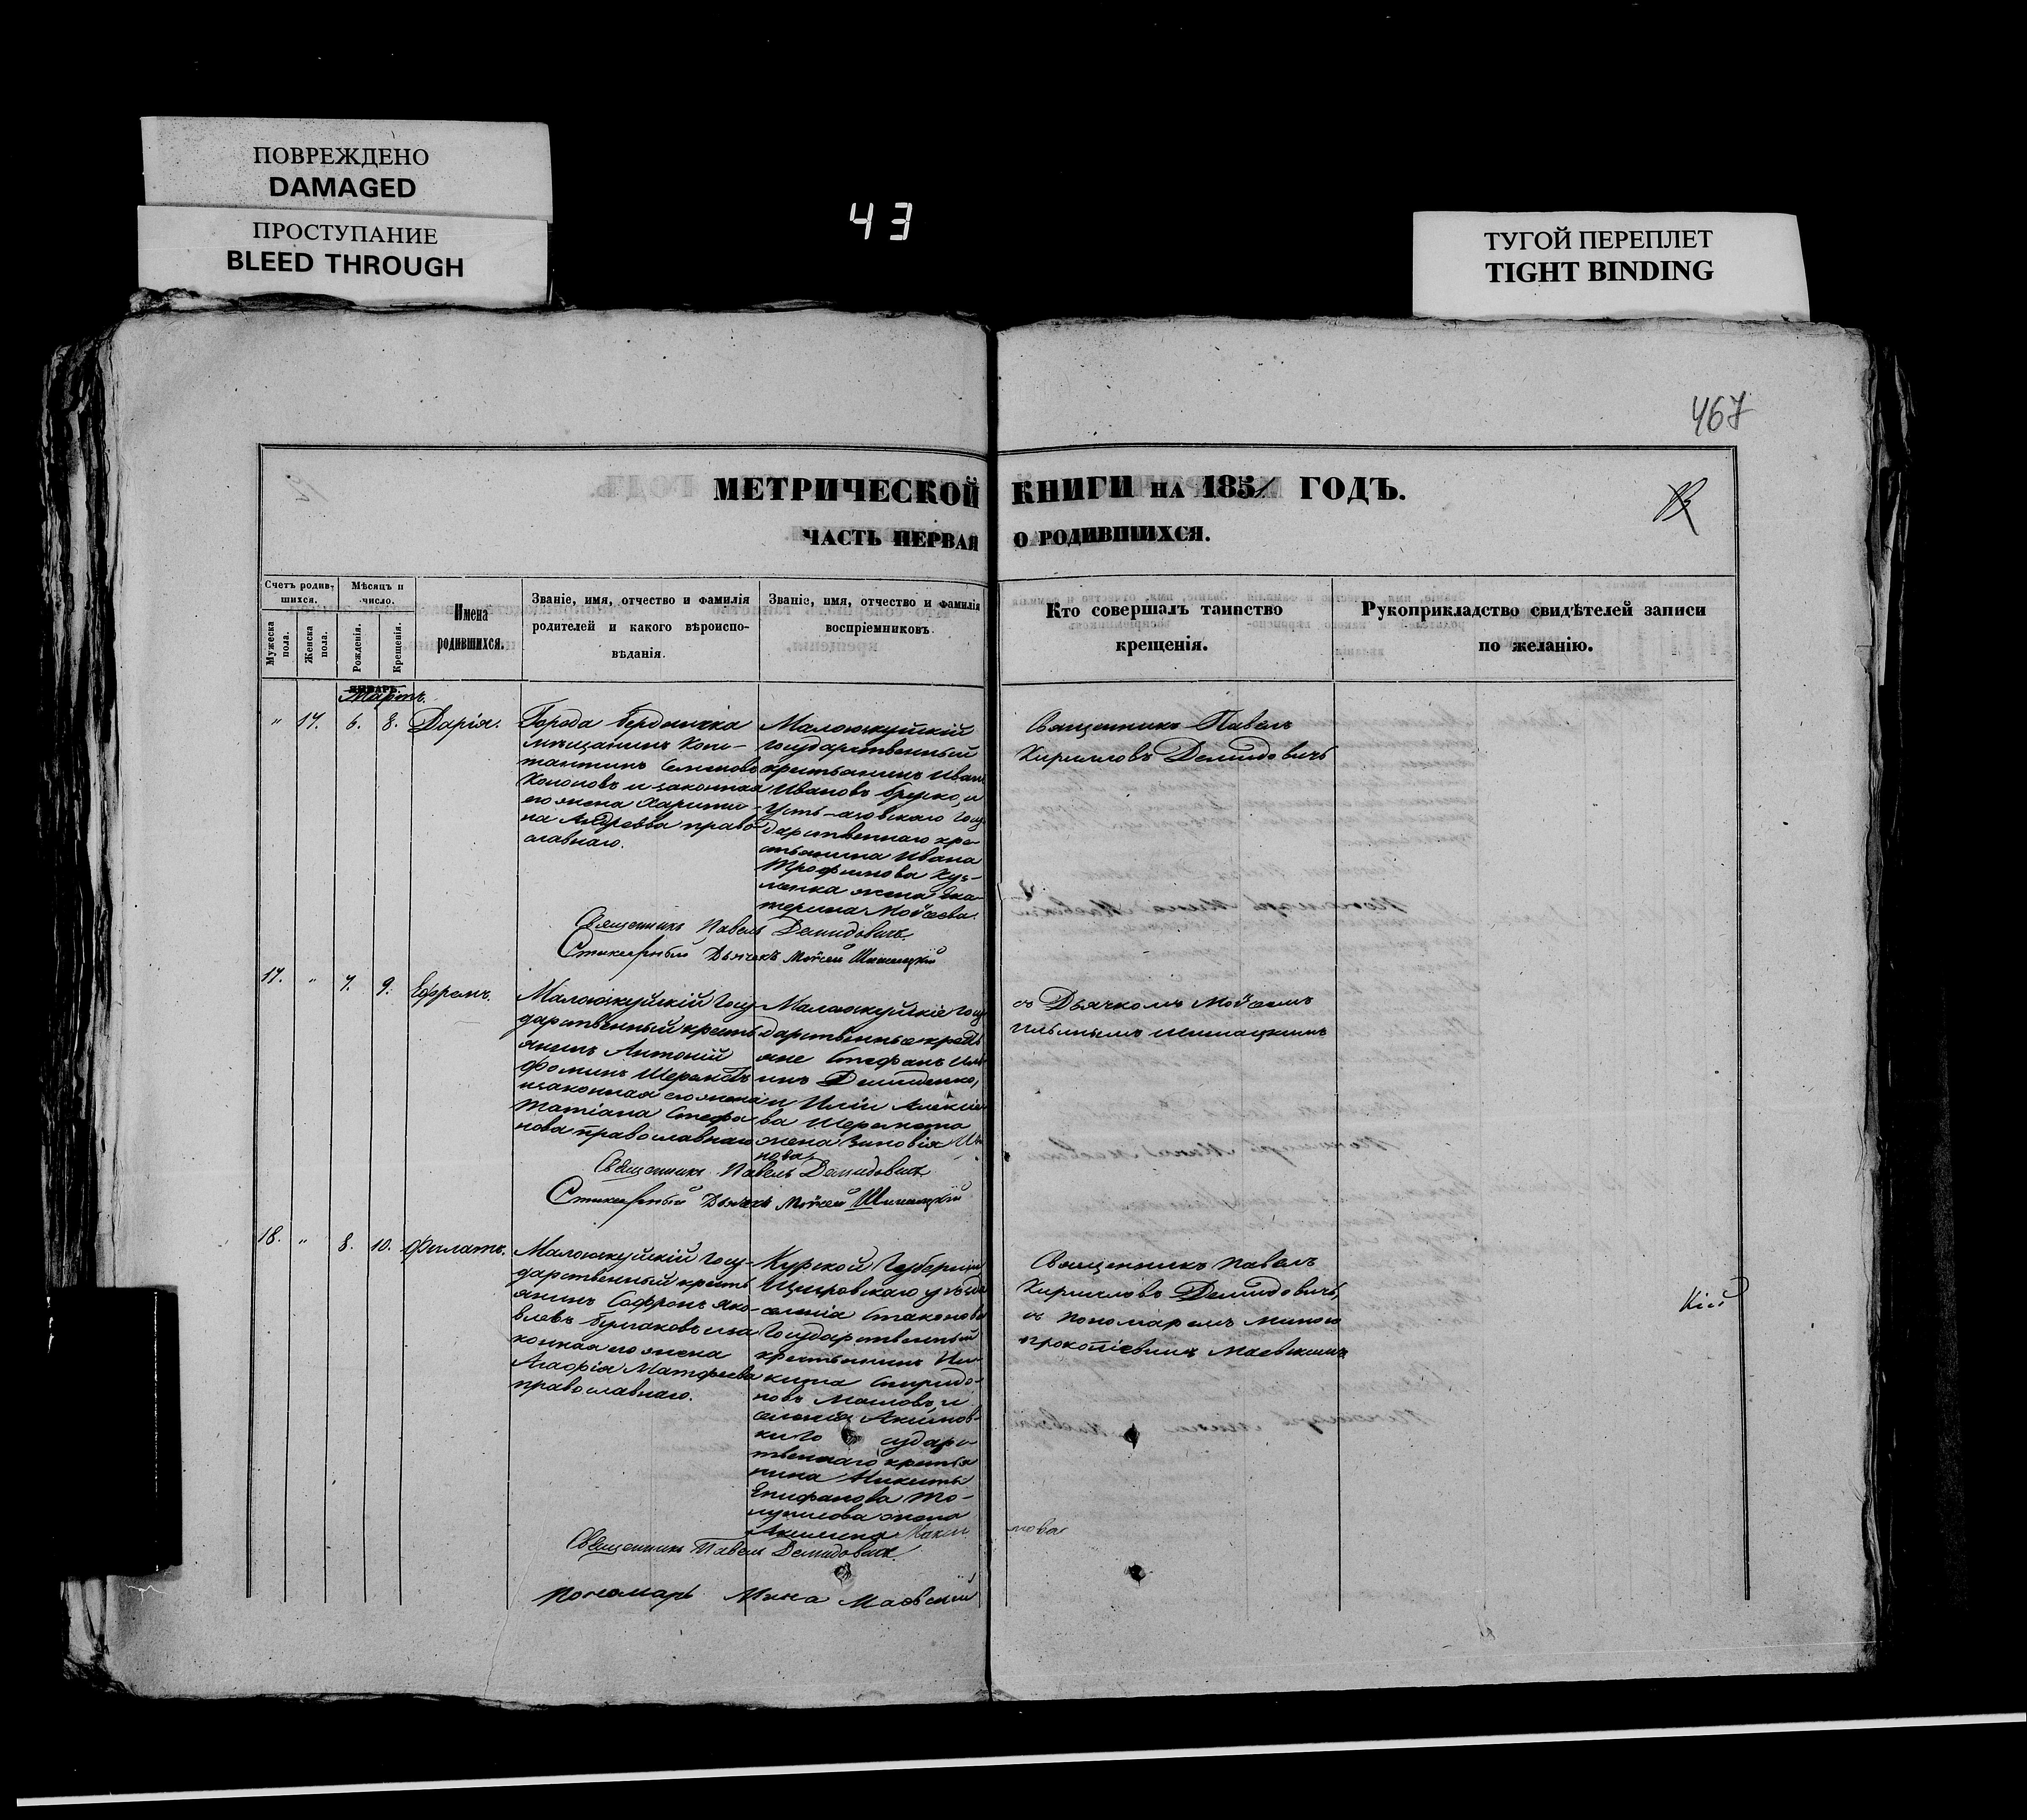 ПОВРЕЖДЕНО
DAMAGED
ПРОСТУПАНИЕ
BLEED THROUGH
43
ТУГОЙ ПЕРЕПЛЕТ
TIGHT BINDING
467
МЕТРИЧЕСКОЙ КНИГИ НА 1851 ГОДЪ.
ЧАСТЬ ПЕРВАЯ О РОДИВШИХСЯ.
Счетъ родив-
шихся.
Мужеска пола.
Женска пола.
Мѣсяцъ и
число.
Рожденія.
Крещенія.
Имена
родившихся.
Званіе, имя, отчество и фамилія
родителей и какого вѣроиспо-
вѣданія.
Званіе, имя, отчество и фамилія
воспріемниковъ.
Кто совершалъ таинство
крещенія.
Рукоприкладство свидѣтелей записи
по желанію.
ЯНВАРЬ.
Мартъ.
" 17. 6. 8. Дарія.
Города Бердянска
мѣщанинъ Конс-
тантинъ Семеновъ
Кононовъ и законная
его жена Харити-
на Андреева право-
славнаго.
Малоюкуйскій
государственный
крестьянинъ Иванъ
Ивановъ и
Государственнаго кре-
стьянина Ивана
Трофимова Куз-
менка жена Ека-
терина Мойсеева.
Священникъ Павелъ
Кирилловъ Демидовичъ
Священникъ Павелъ Демидовичъ
Стихарный Дьячекъ Мойсей Шишацкій
17. " 7. 9. Ефремъ.
Малоюкуйскій Госу-
дарственный кресть-
янинъ Антоній
Фоминъ
и законная его жена
Татіана Стефа-
нова православнаго
Малоюкуйскіе Госу-
дарственные кресть-
яне Стефанъ Иль-
инъ Демиденко,
и Иліи Алексіе-
ва Шеремета
жена Зиновія
нова
съ Дьячкомъ Мойсеемъ
Ильинымъ Шишацкимъ
Священникъ Павелъ Демидовичъ
Стихарный Дьячекъ Мойсей Шишацкій
18. " 8. 10. Филатъ.
Малоюкуйскій Госу-
дарственный кресть-
янинъ Софронъ Яко-
влевъ Булгаковъ и за-
конная его жена
Агафія Матфеева
православнаго.
Курской Губерніи
Щигровскаго уѣзда
селенія Стаканова
Государственный
крестьянинъ Ни-
кита Спиридо-
новъ и
селенія Акимов-
ки Го сударс-
твеннаго крестья-
нина Никиты
Епифанова То-
лупилова жена
Акилина Макси
мова
Священникъ Павелъ
Кирилловъ Демидовичъ,
съ пономаремъ Миною
Прокопіевымъ Маевским
кій
Священникъ Павелъ Демидовичъ
Пономарь Мина Маевскій